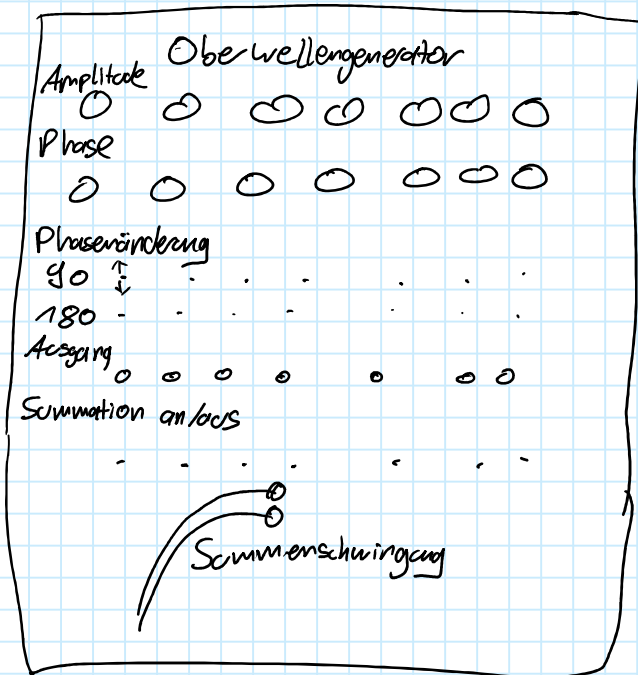 Oberwellengenerator
Amplitude
Phase
Phasenänderung
90
180
Ausgang
Summation an/aus
Summenschwingung